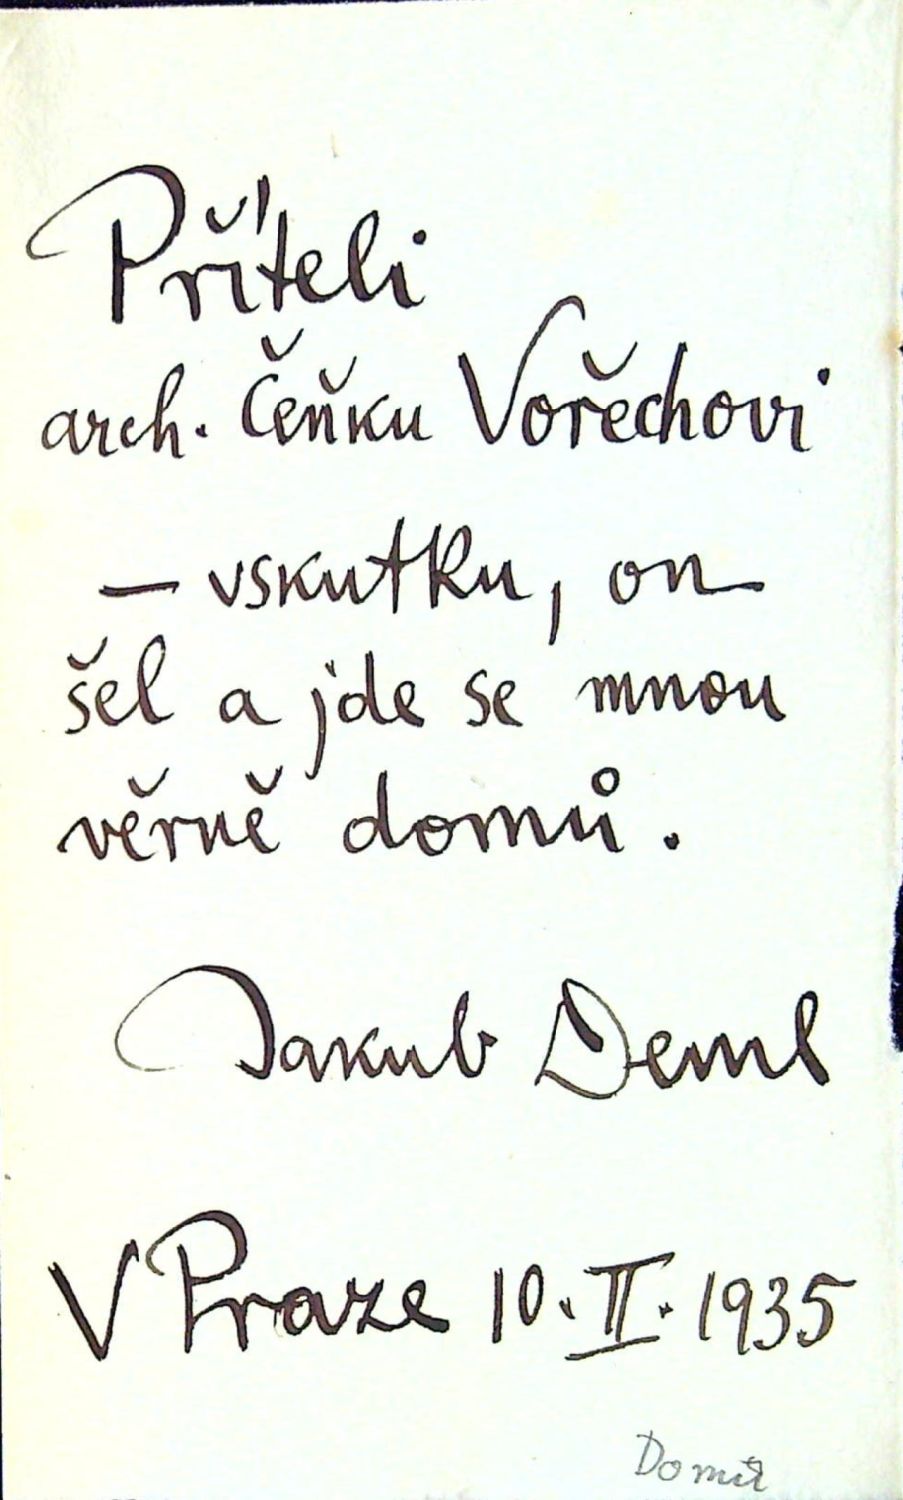 Příteli
arch. Čeňku Vořechovi
— vskutku, on
šel a jde se mnou
věrně domů.
Jakub Deml
V Praze 10. II. 1935
Domů